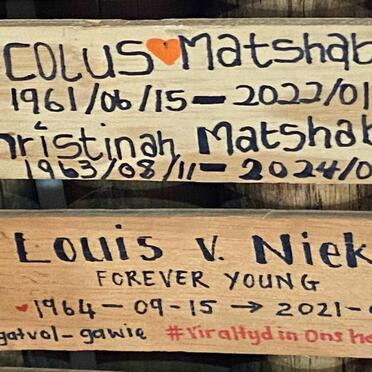 COLUS Matshab
1961/06/15 - 2022/01
hristinah Matshab
1963/08/11 - 2024/0
Louis V. Niek
FOREVER YOUNG
♥1964 - 09-15 → 2021-
gatvol-gawie #Viraltyd in Ons he